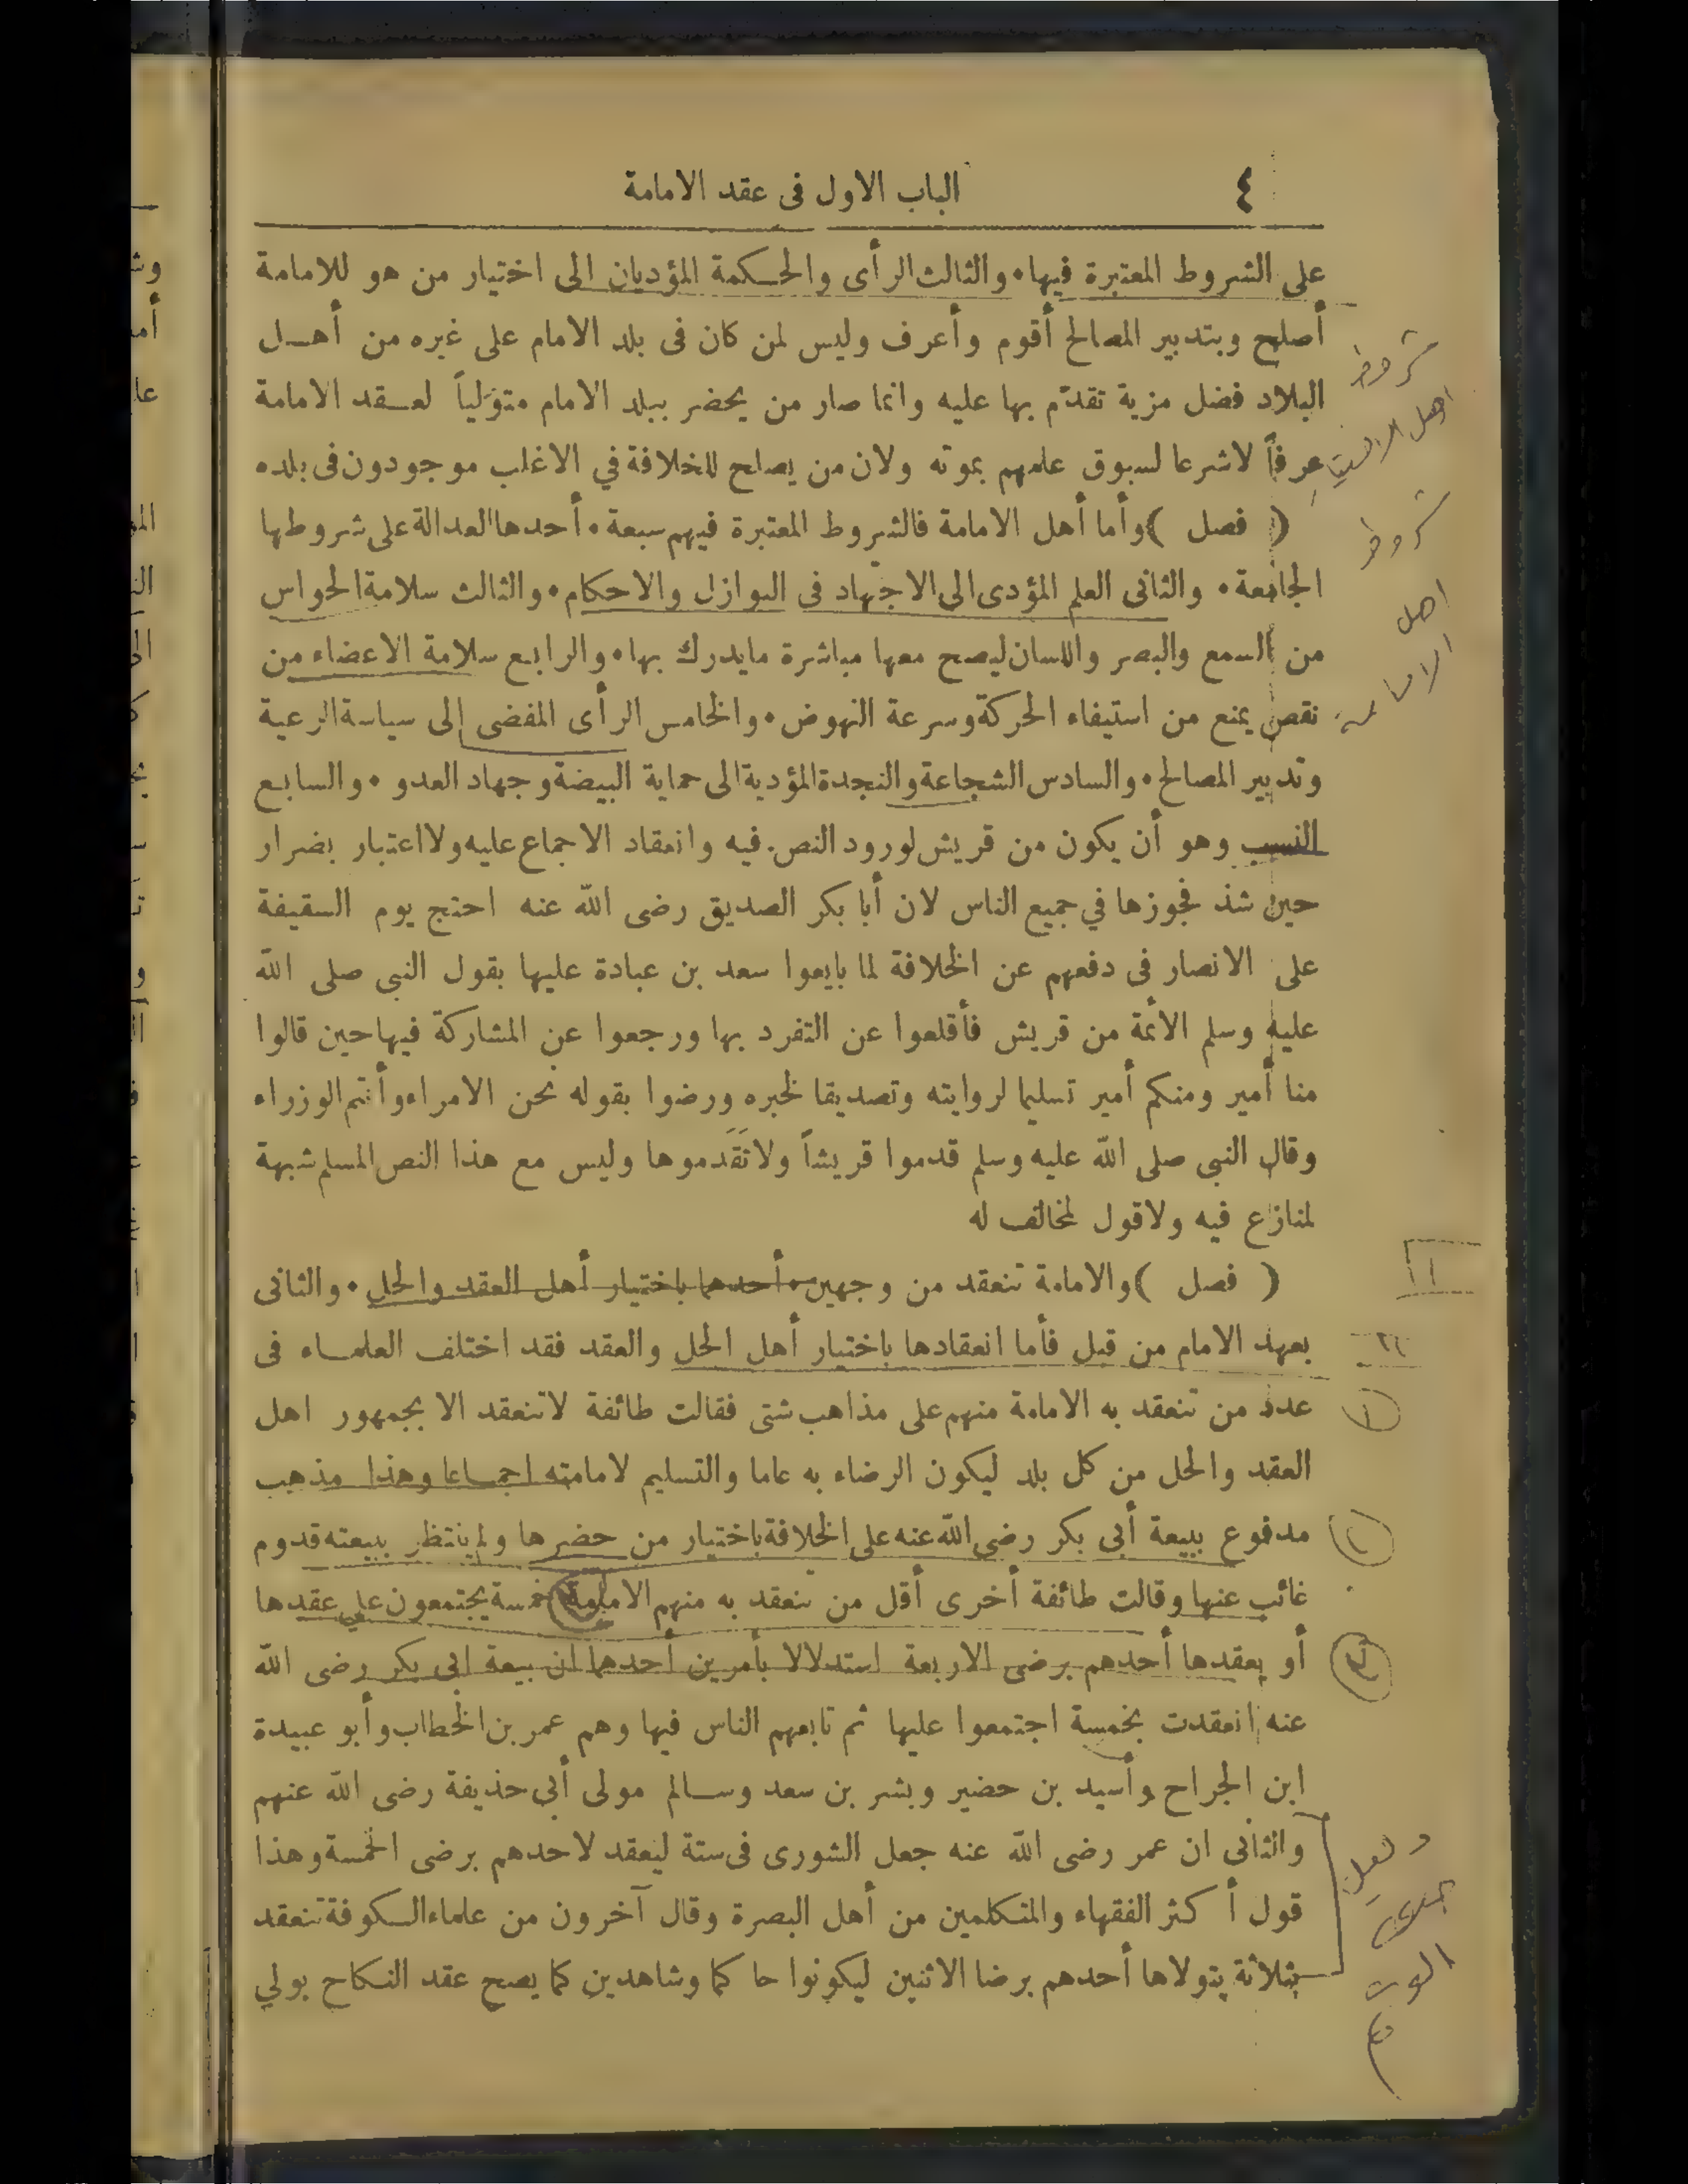 ٤
الباب الاول فى عقد الامامة
على الشروط المعتبرة فيها • والثالث الرأى والحكمة المؤديان الى اختيار من هو للامامة
أصلح وبتدبير المصالح أقوم وأعرف وليس لمن كان فى بلد الامام على غيره من أهل
البلاد فضل مزية تقدّم بها عليه وانما صار من يحضر ببلد الامام متوَلياً لعقد الامامة
عرفاً لاشرعا لسبوق علمهم بموته ولان من يصلح للخلافة في الاغلب موجودون فى بلده
( فصل ) وأما أهل الامامة فالشروط المعتبرة فيهم سبعة • أحدها العدالة على شروطها
الجامعة • والثانى العلم المؤدى الى الاجتهاد فى النوازل والاحكام • والثالث سلامة الحواس
من السمع والبصر واللسان ليصح معها مباشرة مايدرك بها • والرابع سلامة الاعضاء من
نقص يمنع من استيفاء الحركة وسرعة النهوض • والخامس الرأى المفضى الى سياسة الرعية
وتدبير المصالح • والسادس الشجاعة والنجدة المؤدية الى حماية البيضة وجهاد العدو • والسابع
النسب وهو أن يكون من قريش لورود النص فيه وانعقاد الاجماع عليه ولا اعتبار بضرار
حين شذ فجوزها في جميع الناس لان أبا بكر الصديق رضى الله عنه احتج يوم السقيفة
على الانصار فى دفعهم عن الخلافة لما بايعوا سعد بن عبادة عليها بقول النبى صلى الله
عليه وسلم الأئمة من قريش فأقلعوا عن التفرد بها ورجعوا عن المشاركة فيها حين قالوا
منا أمير ومنكم أمير تسليما لروايته وتصديقا لخبره ورضوا بقوله نحن الامراء وأنتم الوزراء
وقال النبى صلى الله عليه وسلم قدموا قريشاً ولا تَقَدموها وليس مع هذا النص المسلم شبهة
لمنازع فيه ولا قول لمخالف له
( فصل ) والامامة تنعقد من وجهين • أحدهما باختيار أهل العقد والحل • والثانى
بعهد الامام من قبل فأما انعقادها باختيار أهل الحل والعقد فقد اختلف العلماء فى
عدد من تنعقد به الامامة منهم على مذاهب شتى فقالت طائفة لاتنعقد الا بجمهور اهل
العقد والحل من كل بلد ليكون الرضاء به عاما والتسليم لامامته اجماعا وهذا مذهب
مدفوع ببيعة أبى بكر رضى الله عنه على الخلافة باختيار من حضرها ولم ينتظر ببيعته قدوم
غائب عنها وقالت طائفة أخرى أقل من تنعقد به منهم الامامة خمسة يجتمعون على عقدها
أو يعقدها أحدهم برضى الاربعة استدلالا بأمرين أحدهما ان بيعة ابى بكر رضى الله
عنه انعقدت بخمسة اجتمعوا عليها ثم تابعهم الناس فيها وهم عمر بن الخطاب وأبو عبيدة
ابن الجراح وأسيد بن حضير وبشر بن سعد وسالم مولى أبى حذيفة رضى الله عنهم
والثانى ان عمر رضى الله عنه جعل الشورى فى ستة ليعقد لاحدهم برضى الخمسة وهذا
قول أكثر الفقهاء والمتكلمين من أهل البصرة وقال آخرون من علماء الكوفة تنعقد
بثلاثة يتولاها أحدهم برضا الاثنين ليكونوا حاكما وشاهدين كما يصح عقد النكاح بولي
شروط
اهل
شروط
اهل
الامامة